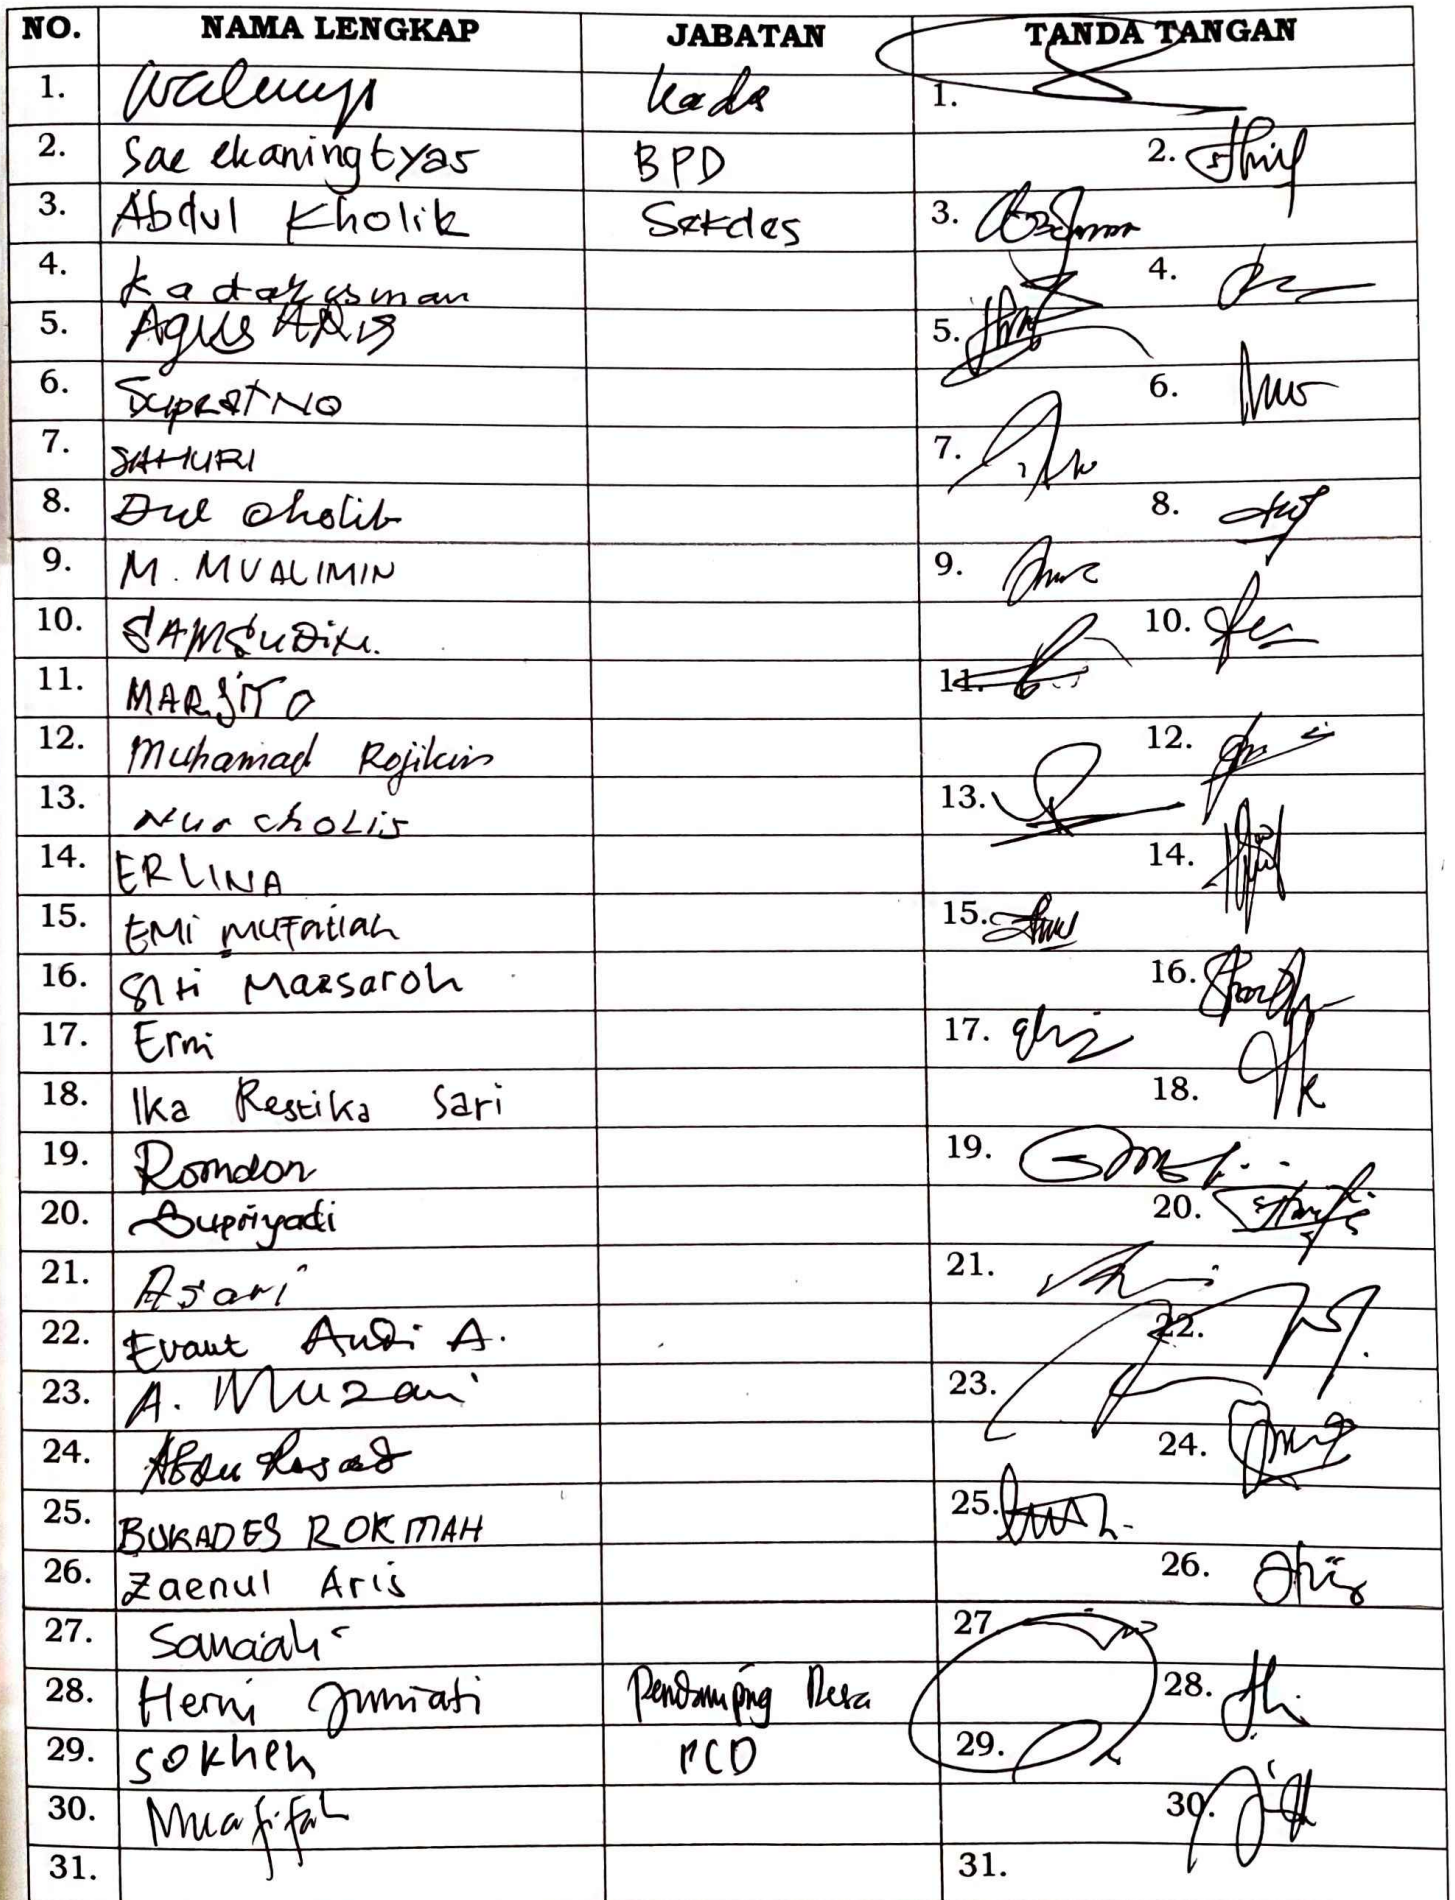 NO. NAMA LENGKAP JABATAN TANDA TANGAN
1. Waluyo Kades 1.
2. Sae ekaningtyas BPD 2.
3. Abdul Kholik Sekdes 3.
4. 4.
5. Agus ARIS 5.
6. SupRatNO 6.
7. SAHURI 7.
8. Dul Cholik 8.
9. M. MUALIMIN 9.
10. SAMSUDIN. 10.
11. MARSITO 11.
12. Muhamad Rojikin 12.
13. Nur choLis 13.
14. ERLINA 14.
15. EMi 15.
16. Siti Maesaroh 16.
17. Erni 17.
18. Ika Restika Sari 18.
19. Romdon 19.
20. Supriyadi 20.
21. Asari 21.
22. Andi A. 22.
23. A. Muzani 23.
24. 24.
25. BUKADES ROKMAH 25.
26. Zaenul Aris 26.
27. 27.
28. Herni Jumiati Pendamping Desa 28.
29. Sokheh PCD 29.
30. Muafifah 30.
31. 31.